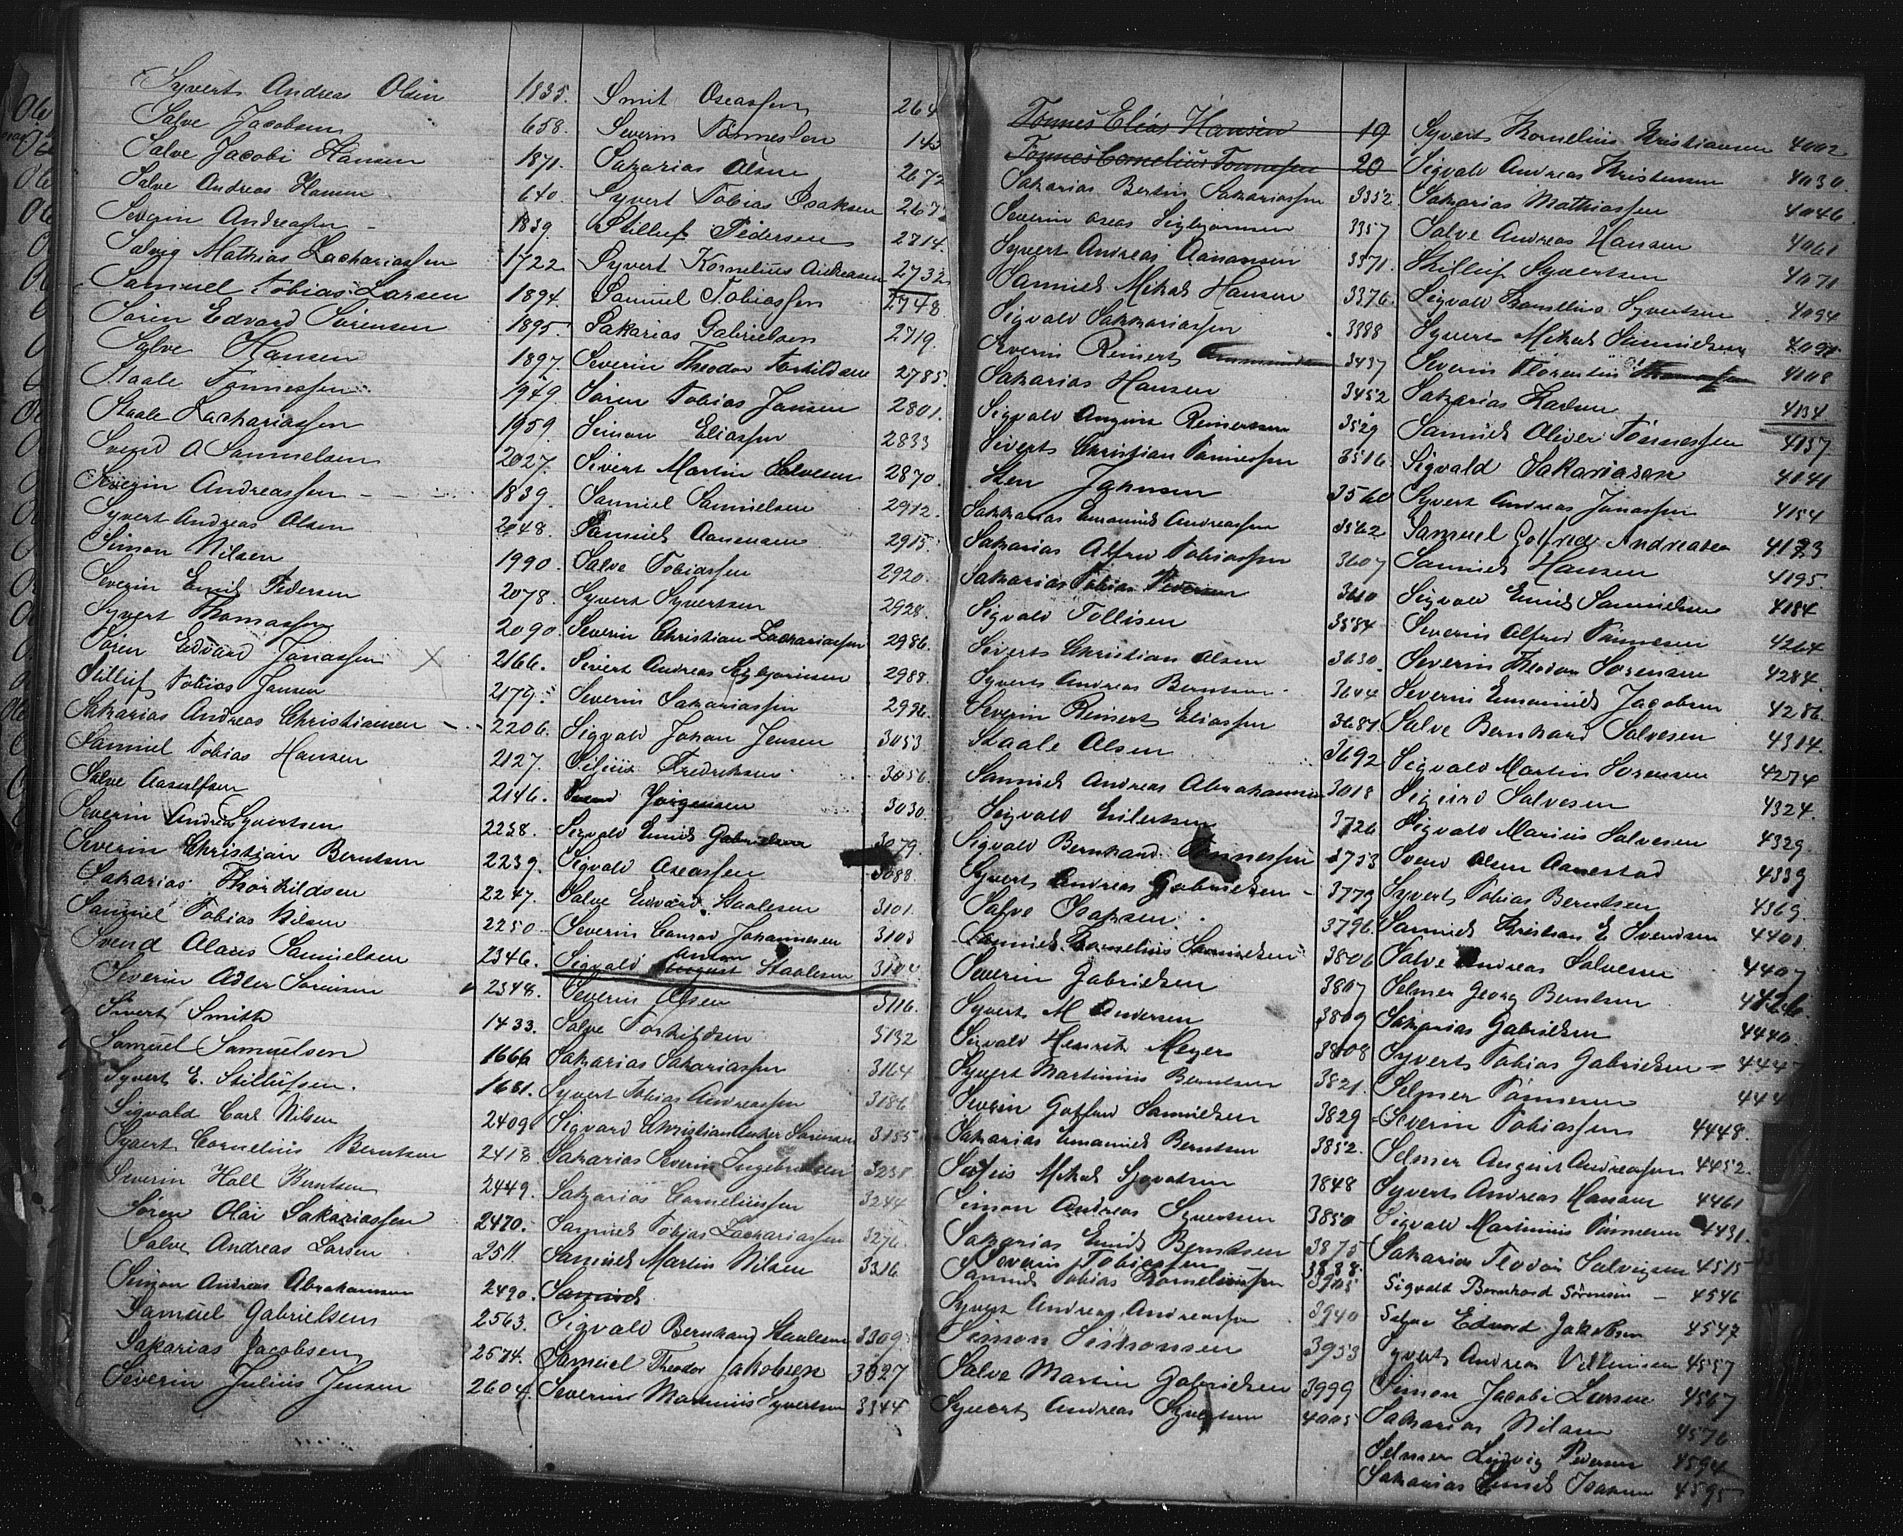 Syvert Andreas Olsen 1835.
Salve Jacobsen 658.
Salve Jacobi Hansen 1871.
Salve Andreas Hansen 640.
Severin Andreassen 1839.
Salvig Mathias Zachariassen 1722
Samuel Tobias Larsen 1894.
Søren Edvard Sørensen 1895.
Salve Hansen 1897.
Staale Tønnessen 1949.
Staale Zachariassen 1959.
Svend A Samuelsen 2027.
Severin Andreassen 1839.
Syvert Andreas Olsen 2048.
Simon Nilsen 1990.
Severin Emil Pedersen 2078.
Syvert Thomassen 2090.
Søren Edvard Jonassen 2166.
Stilluf Tobias Jansen 2179.
Sakarias Andreas Christiansen 2206.
Samuel Tobias Hansen 2127.
Salve Aasulfsen 2146.
Severin Andreas Syvertsen 2238.
Severin Christian Berntsen 2239.
Sakarias Thorkildsen 2247.
Samuel Tobias Nilsen 2250.
Svend Olaus Samuelsen 2346.
Severin Adler Sørensen 2348.
Sivert Smith 1433.
Samuel Samuelsen 1666
Syvert E. Stillufsen. 1681.
Sigvald Carl Nilsen 2409
Syvert Cornelius Berntsen 2418
Severin Hall Berntsen 2449.
Søren Olai Sakariassen 2470.
Salve Andreas Larsen 2511.
Simon Andreas Abrahamsen 2490.
Samuel Gabrielsen 2563.
Sakarias Jacobsen 2574.
Severin Julius Jensen 2604.
Smit Oseassen 264
Severin Tønnessen 145
Sakarias Olsen 2672
Syvert Tobias Isaksen 267
Stilluf Pedersen 2714.
Syvert Kornelius Andreasen 2732
Samuel Tobiassen 2748.
Sakarias Gabrielsen 2719.
Severin Theodor Torkildsen 2785.
Søren Tobias Jansen 2801.
Simon Eliassen 2833
Sivert Martin Salvesen 2870.
Samuel Samuelsen 2912.
Samuel Aanensen 2915.
Salve Tobiassen 2920.
Syvert Syvertsen 2928.
Severin Christian Zachariassen 2986.
Sivert Andreas Asbjørnsen 2988.
Severin Sakariassen 2996.
Sigvald Johan Jensen 3053.
Silius Fredriksen 3056.
Svend Jørgensen 3030.
Sigvald Emil Gabrielsen 3079.
Sigvald Oseassen 3088.
Salve Edvard Staalesen 3101
Severin Conrad Johannesen 3103
Anton
Sigvald August Staalesen 3104
Severin Olsen 3116.
Salve Torkildsen 3132
Sakarias Sakariassen 3164
Syvert Tobias Andreassen 3186
Sigvard Christian Anker Sørensen 3155
Sakarias Severin Ingebretsen 3238.
Sakarias Corneliussen 3244
Samuel Tobias Zachariassen 3276.
Samuel Martin Nilsen 3316
Samuel
Sigvald Bernhard Staalesen 3309.
Samuel Theodor Jakobsen 3027
Severin Martinius Syvertsen 3344
Tønnes Elias Hansen 19
Tønnes Cornelius Tønnesen 20
Sakarias Bertin Sakariassen 3352.
Severin Oseas Sigbjørnsen 3357
Syvert Andreas Aanensen 3371.
Samuel Mikal Hansen 3376.
Sigvald Sakkariassen 3388
Severin Reinert 3437
Sakarias Hansen 3452
Sigvald August Reinertsen 3529
Siverts Christian Tønnessen 3516.
Sten Johnsen 3560
Sakkarias Emanuel Andreassen 3562
Sakarias Alfred Tobiassen 3607
Sakarias Tobias Pedersen 3610
Sigvald Tollisen 3584
Siverts Christian Olsen 3630.
Syverts Andreas Berntsen 3644
Severin Reinert Eliassen 3681
Staale Olsen 3692
Samuel Andreas Abrahamsen 3018
Sigvald Eilertsen 3726
Sigvald Bernhard Tønnessen 3753
Syverts Andreas Gabrielsen 3779
Salve Isaksen 3796
Samuel Kornelius Samuelsen 3806
Severin Gabrielsen 3807
Syverts M Andersen 3809
Sigvald Henrik Meyer 3808
Syvert Martinius Berntsen 3821.
Severin Gotfred Samuelsen 3829
Sakarias Emanuel Berntsen 3852.
Sofus Mikal Sjovatsen 3848
Simon Andreas Syvertsen 3850
Sakarias Emil Berntsen 3875
Severin Tobiassen 3888.
Samuel Tobias Korneliussen 3905
Syvert Andreas Andreassen 3940
Simon Simonsen 3953
Salve Martin Gabrielsen 3999
Syvert Andreas Syvertsen 4005
Syvert Kornelius Kristiansen 4002
Sigvald Andreas Kristensen 4030.
Sakarias Mathiassen 4046.
Salve Andreas Hansen 4061
Stilluf Syvertsen 4071
Sigvald Kornelius Syvertsen 4094
Syvert Mikal Samuelsen 4098
Severin Florentin 4108
Sakarias Karlsen 4134
Samuel Oliver Tønnessen 4137
Sigvald Sakariasen 4141
Syvert Andreas Jonassen 4154
Samuel Gotfred Andreasen 4173
Samuel Hansen 4195
Sigvald Emil Samuelsen 4184
Severin Alfred Tønnesen 4264
Severin Theodor Sørensen 4284.
Severin Emanuel Jacobsen 4286.
Salve Bernhard Salvesen 4314.
Sigvald Martin Sørensen 4274
Sigurd Salvesen 4324.
Sigvald Marius Salvesen 4329.
Svend Olsen Aanestad 4339
Syvert Tobias Berntsen 4369.
Samuel Kristian E Svendsen 4401
Salve Andreas Salvesen 4407
Selmer Georg Berntsen 4426.
Sakarias Gabrielsen 4440.
Syverts Tobias Gabrielsen 444
Selmer Tønnesen 444
Severin Tobiassen 4448.
Selmer August Andreassen 4452.
Syverts Andreas Hansen 4461
Sigvald Martinius Tønnesen 4431.
Sakarias Teodor Salvesen 4515
Sigvald Bernhard Sørensen 4546
Salve Edvard Jakobsen 4547
Syverts Andreas Villumsen 4557
Simon Jacobi Larsen 4567
Sakarias Nilsen 4576
Selmer Ludvig Pedersen 4594
Sakarias Emil Isaksen 4595